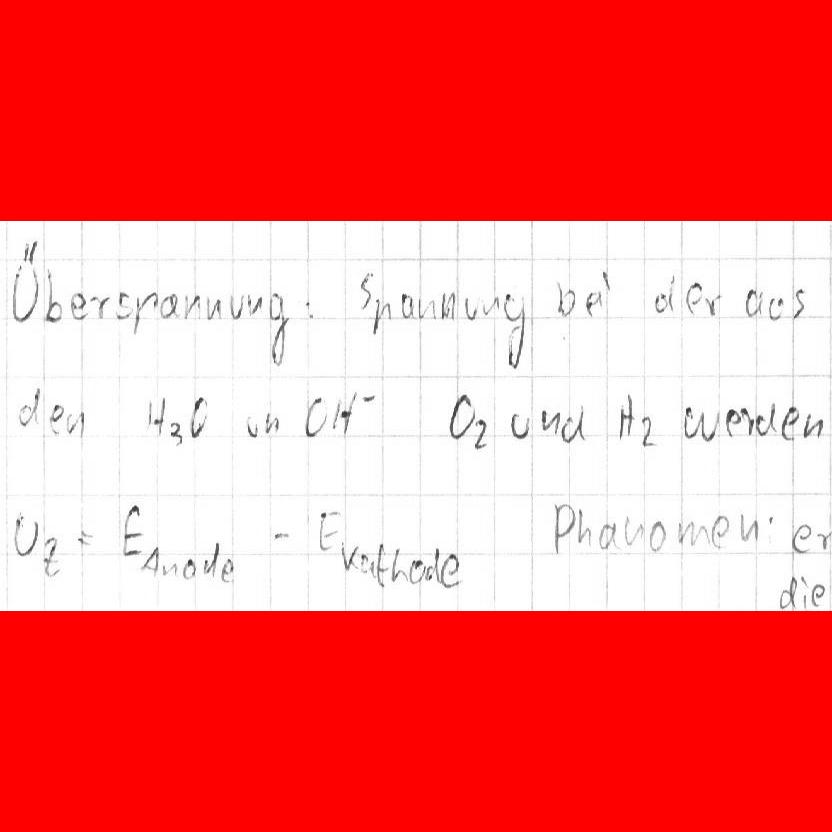 Überspannung: Spannung bei der aus
den H₃O un OH⁻ O₂ und H₂ werden
U_Z = E_Anode - E_Kathode Phänomen: er
die